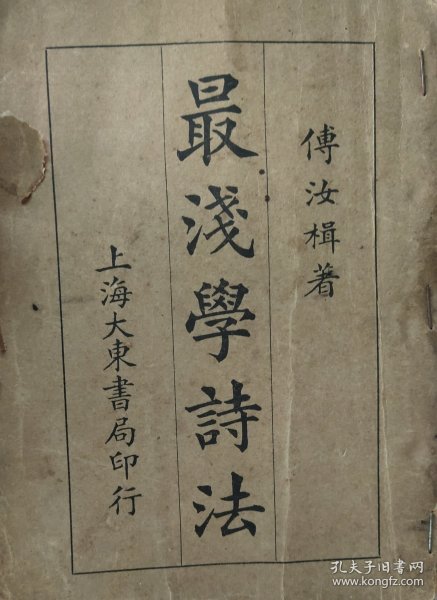 傅汝楫著
最淺學詩法
上海大東書局印行
孔夫子旧书网
www.kongfz.com